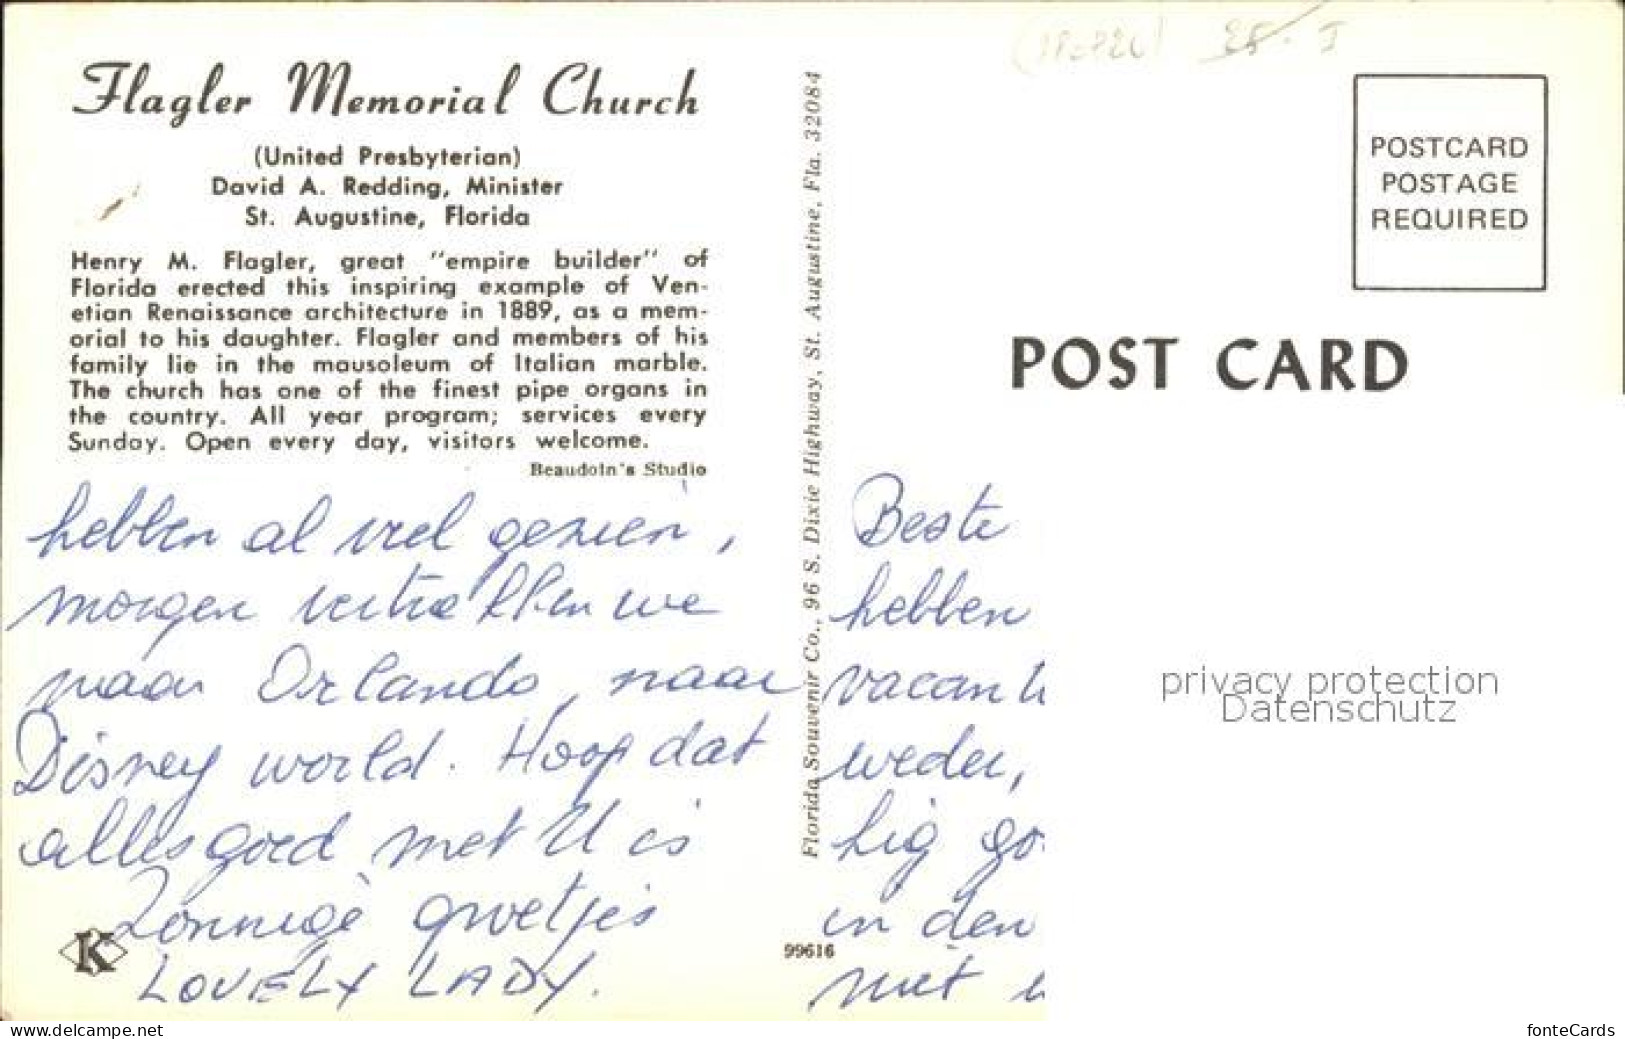 Flagler Memorial Church
(United Presbyterian)
David A. Redding, Minister
St. Augustine, Florida
Henry M. Flagler, great "empire builder" of
Florida erected this inspiring example of Ven-
etian Renaissance architecture in 1889, as a mem-
orial to his daughter. Flagler and members of his
family lie in the mausoleum of Italian marble.
The church has one of the finest pipe organs in
the country. All year program; services every
Sunday. Open every day, visitors welcome.
Beaudoin's Studio
hebben al veel gezien,
morgen vertrekken we
naar Orlando, naar
Disney world. Hoop dat
alles goed met U is
Zonnige groetjes
LOVELY LADY.
K
99616
Florida Souvenir Co., 96 S. Dixie Highway, St. Augustine, Fla. 32084
POSTCARD
POSTAGE
REQUIRED
POST CARD
Beste
hebben
vacan
weder,
hig go
in den
niet
privacy protection
Datenschutz
www.delcampe.net
fonteCards